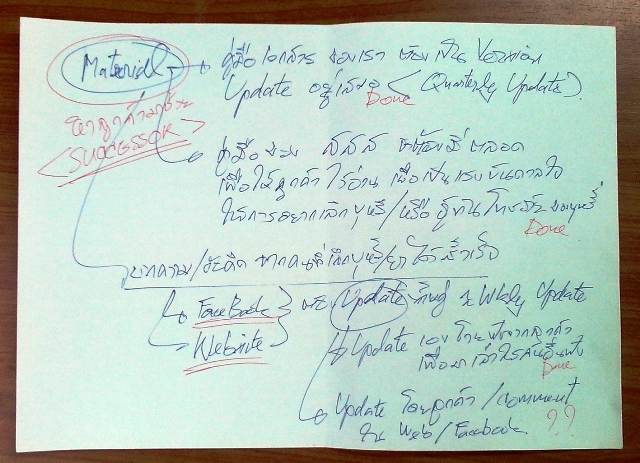 Material → คู่มือเอกสาร ของเรา ต้องเป็น Version
Update อยู่เสมอ (Quarterly Update)
Done
หาลูกค้ามาช่วย
<SUCCESSOR>
คู่มือของ สสส จะต้องมี ตลอด
เพื่อให้ลูกค้า ไว้อ่าน เพื่อเป็นแรงบันดาลใจ
ในการอยากเลิกบุหรี่/หรือ รู้ทันโทษภัย ของบุหรี่
Done
บทความ/ข้อคิด จากคนที่เลิกบุหรี่/ยา ได้สำเร็จ
FaceBook
Website
Update Wkly Update
Update เอง โดย ฟังจากลูกค้า
เพื่อมาเล่าให้คนอื่นฟัง
Done
Update โดยลูกค้า/comment
ใน Web/Facebook ??